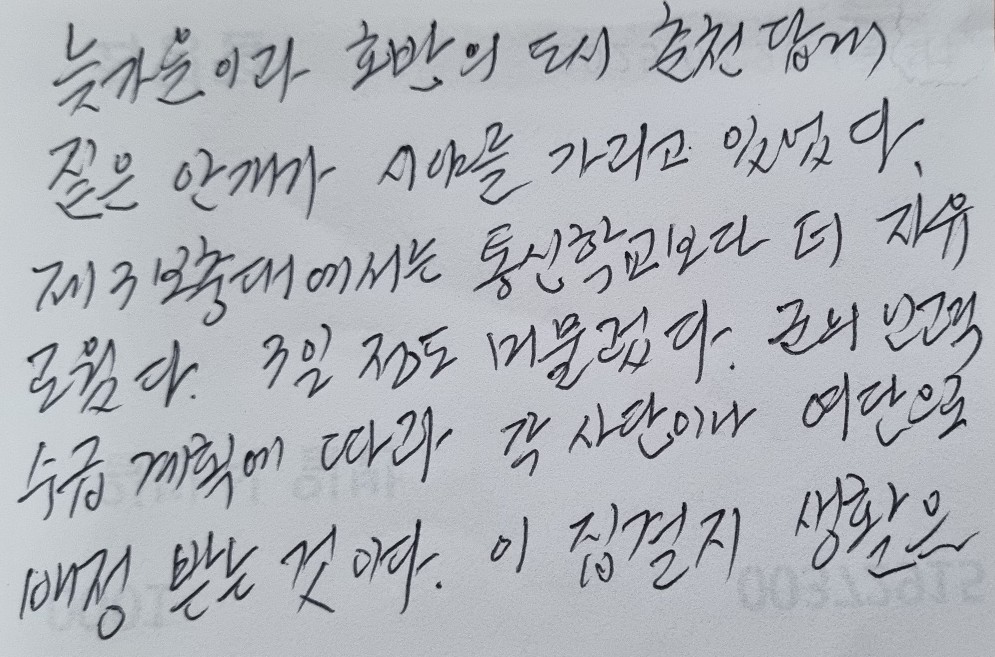 늦가을이라 호반의 도시 춘천답게
짙은 안개가 시야를 가리고 있었다.
제3보충대에서는 통신학교보다 더 자유
로웠다. 3일 정도 머물렀다. 군의 인력
수급 계획에 따라 각 사단이나 여단으로
배정 받는 것이다. 이 집결지 생활은